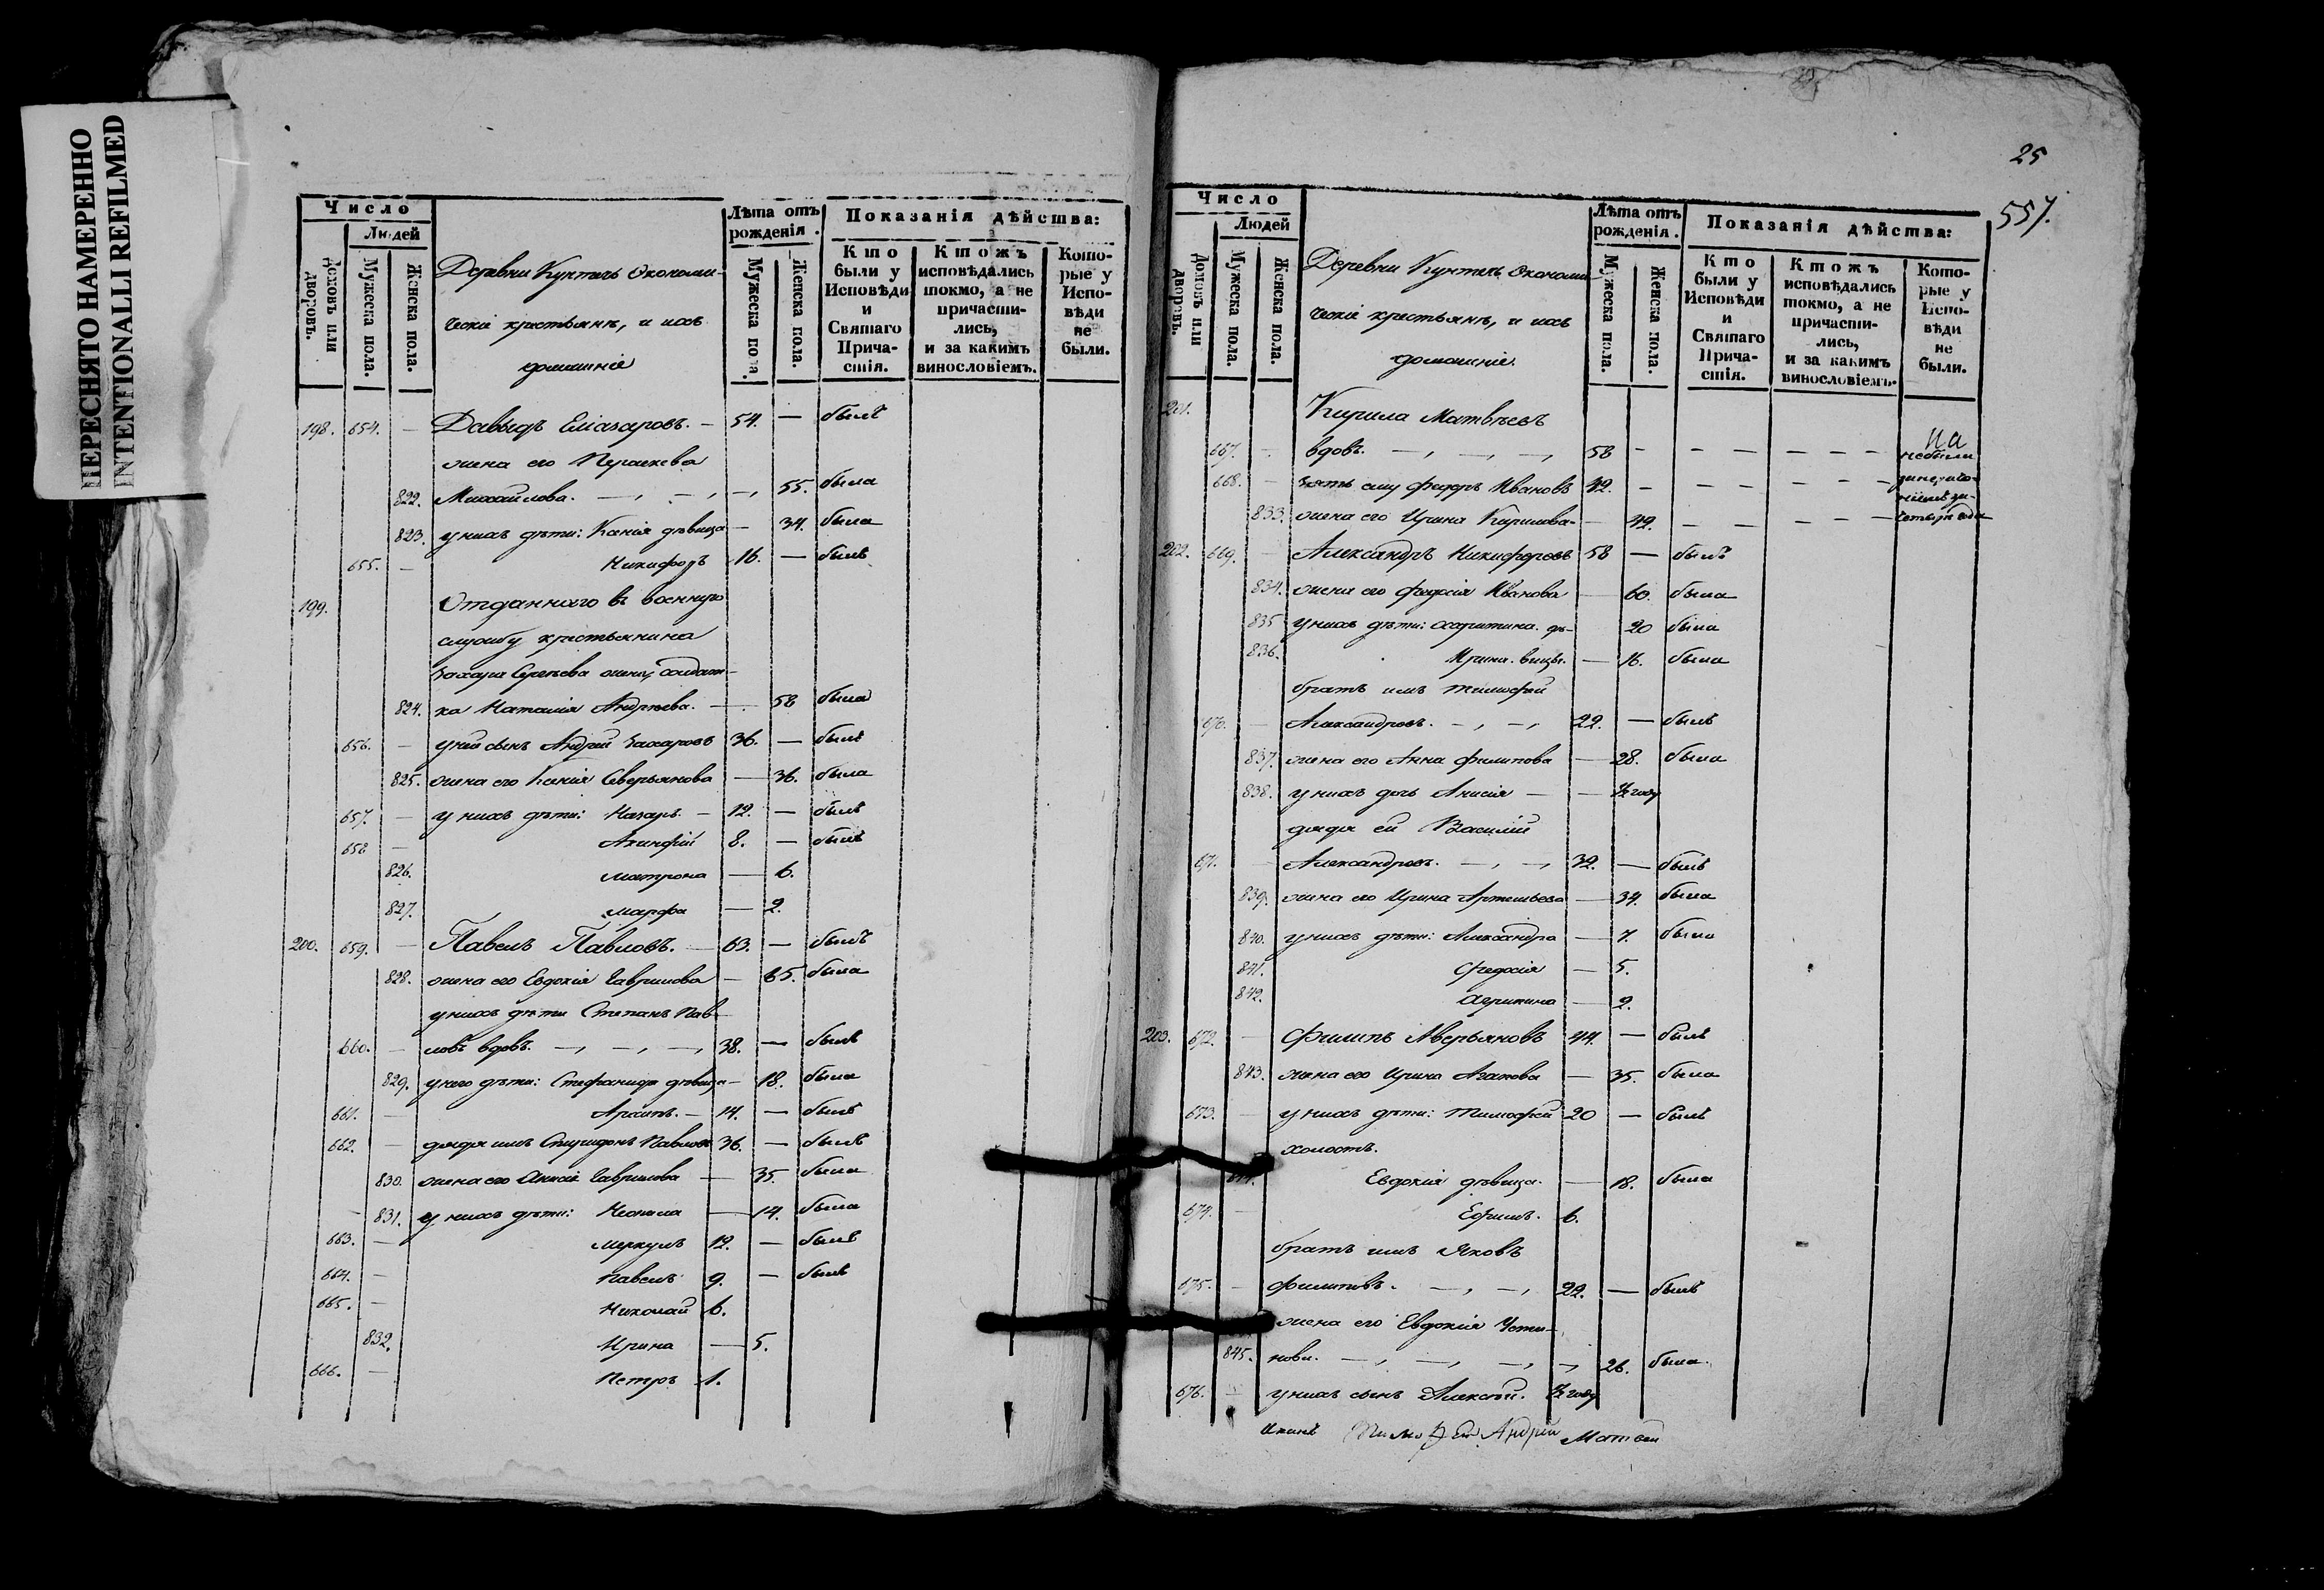 ПЕРЕСНЯТО НАМЕРЕННО
INTENTIONALLI REFILMED
Число
Людей
Домовъ или дворовъ.
Мужеска пола.
Женска пола.
Деревни Кунтечь Экономи-
ческіе крестьянѣ, и ихъ
домашніе
Лѣта отъ рожденія.
Мужеска пола.
Женска пола.
Показанія дѣйства:
Кто были у Исповѣди и Святаго Причастія.
Ктожъ исповѣдались токмо, а не причастились, и за какимъ винословіемъ.
Которые у Исповѣди не были.
198. 654. — Давыдъ Еліазаровъ. — 54. — былъ
жена его Параскева
822. Михайлова. — 55. была
823. у нихъ дѣти: Ксенія дѣвица — 34. была
655. — Никифоръ 16. — былъ
199. Отданнаго въ военную
службу крестьянина
Захара Сергѣева жена, солдат-
824. ка Наталія Андрѣева. — 58 была
656. — у ней сынъ Андрей Захаровъ 36. — былъ
825. жена его Ксенія Северьянова — 36. была
657. — у нихъ дѣти: Назаръ — 12. — былъ
658 — Акинфій 8. — былъ
826. Матрона — 6.
827. Марфа — 2.
200. 659. — Павелъ Павловъ. — 63. — былъ
828. жена его Евдокія Гаврилова — 65. была
у нихъ дѣти Степанъ Пав-
660. — ловъ вдовъ. 38. — былъ
829. у него дѣти: Стефанида дѣвица — 18. была
661. — Архипъ. — 14. — былъ
662. — дядя имъ Спиридонъ Павловъ 36. — былъ
830. жена его Анисія Гаврилова — 35. была
831. у нихъ дѣти: Неонила — 14. была
663. — Меркулъ 12. — былъ
664. — Павелъ 9. — былъ
665. — Николай 6.
832. Ирина — 5.
666. — Петръ 1.
25
557.
Число
Людей
Домовъ или дворовъ.
Мужеска пола.
Женска пола.
Деревни Кунтечь Экономи-
ческіе крестьянѣ, и ихъ
домашніе.
Лѣта отъ рожденія.
Мужеска пола.
Женска пола.
Показанія дѣйства:
Кто были у Исповѣди и Святаго Причастія.
Ктожъ исповѣдались токмо, а не причастились, и за какимъ винословіемъ.
Которые у Исповѣди не были.
201. Кирила Матвѣевъ
667. — вдовъ. 58 — — — — — — небыли
668. — зять ему Федоръ Ивановъ 42. — — — — — —
833. жена его Ирина Кирилова — 42. — — — — —
202. 669. — Александръ Никифоровъ 58 — былъ
834. жена его Федосія Иванова — 60. была
835 у нихъ дѣти: Харитина. дѣ- 20 была
836. Ирина. вицы. — 16. была
братъ имъ Тимофей
670. — Александровъ. 22. — былъ
837. жена его Анна Филипова — 28. была
838. у нихъ дочь Анисія — — ½ году
дядя ей Василій
671. — Александровъ. 32. — былъ
839. жена его Ирина Артемьева — 34. была
840. у нихъ дѣти: Александра — 7. была
841. Федосія — 5.
842. Агрипина — 2.
203. 672. — Филипъ Аверьяновъ 44. — былъ
843. жена его Ирина Агапова — 35. была
673. — у нихъ дѣти: Тимофей 20 — былъ
холостъ.
844. Евдокія дѣвица. — 18. была
674. — Ефимъ. 6.
братъ имъ Яковъ
675. — Филиповъ. 22. — былъ
жена его Евдокія Усти-
845. нова. 26. была.
676. — у нихъ сынъ Алексѣй. ½ году
Тимофей Андрей Матвѣй